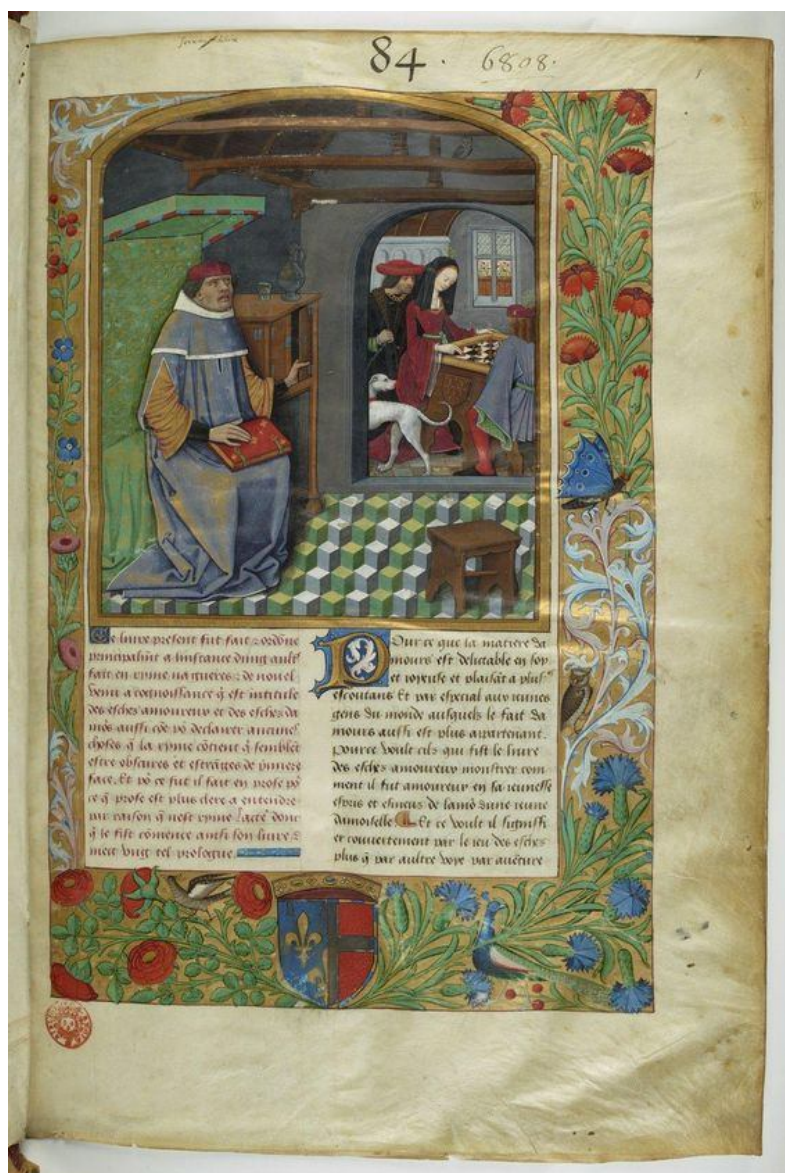 84.
6808.
1
Ce livre present fut fait & ordōne
principalmt a linstance dung aultre
fait en ryme na gueres & de nouel
venu a cognoissance q̄ est intitule
des esches amoureux et des esches da
mōs aussi cōe po declarer aucunes
choses q̄ la ryme cōtient q̄ semblēt
estre obscures et estrāges de p̄miere
face. Et po ce fut il fait en prose po
ce q̄ prose est plus clere a entendre
par raison q̄ nest ryme
q̄ le fist cōmence ainsi son livre &
mect vng tel prologue.
Pour ce que la matiere da
mours est delictable en soy
et ioyeuse et plaisāt a plusrs
escoutans Et par especial aux ieunes
gens du monde ausquels le fait da
mours aussi est plus appartenant.
Pource voult cilz qui fist le livre
des esches amoureux monstrer com
ment il fut amoureux en sa ieunesse
espris et esmeus de lamor dune ieune
damoiselle. Et ce voult il signiffi
er couvertement par le ieu des esches
plus q̄ par aultre voye par avēture